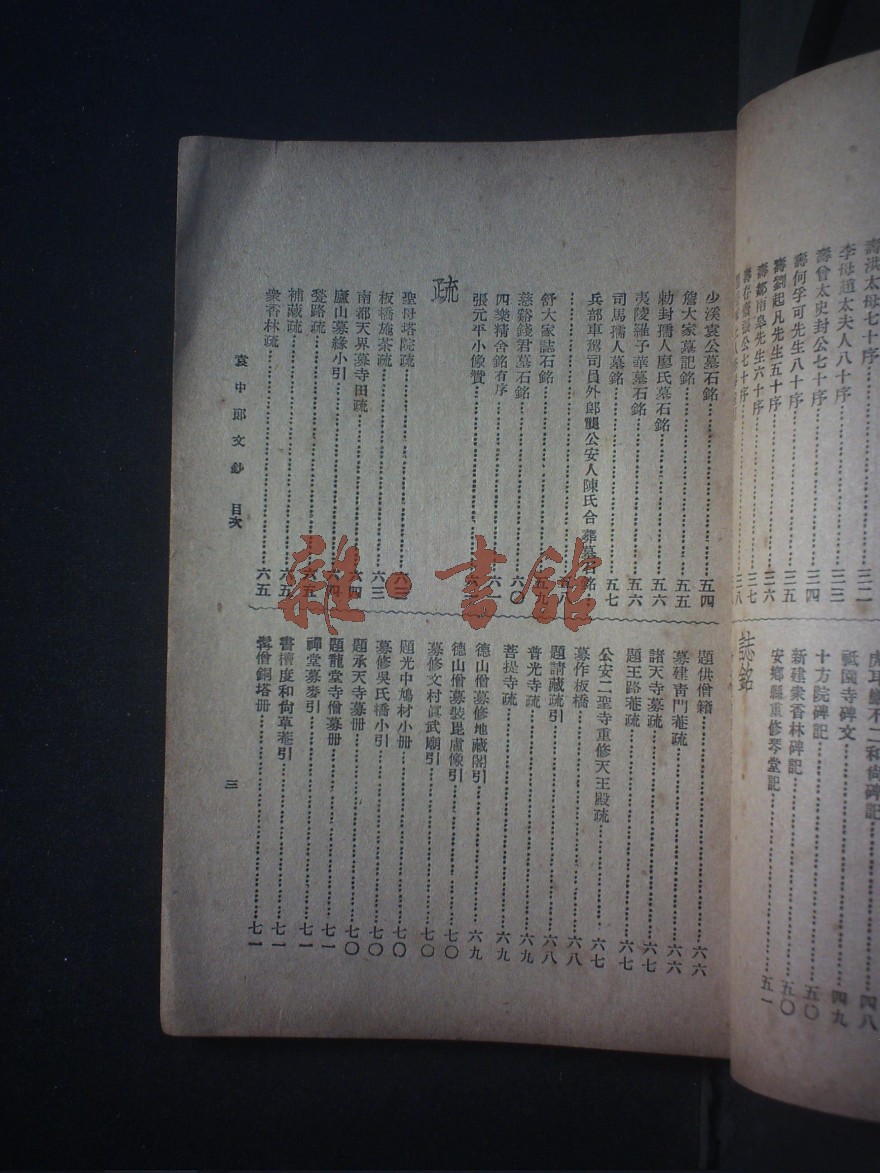 壽洪太母七十序……三二
李母趙太夫人八十序……三三
壽曾太史封公七十序……三四
壽何孚可先生八十序……三五
壽劉起凡先生五十序……三六
壽鄒南皋先生六十序……三七
壽存齋張公七十序……三八
誌銘
不二和尚碑記……四八
祗園寺碑文……四九
十方院碑記……五〇
新建衆香林碑記……五〇
安鄉縣重修琴堂記……五一
少溪袁公墓石銘……五四
詹大家墓記銘……五五
勅封孺人廖氏墓石銘……五六
夷陵羅子華墓石銘……五六
司馬孺人墓銘……五七
兵部車駕司員外郎龔公安人陳氏合葬墓石銘……
……五八
舒大家誌石銘……五九
慈谿錢君墓石銘……六〇
四樂精舍銘有序……六一
張元平小像贊……六
疏
聖母塔院疏……六三
板橋施茶疏……六三
南都天界募寺田疏……六四
廬山募緣小引……六四
甃路疏……六五
補藏疏……六五
衆香林疏……六五
題供僧籍……六六
募建靑門菴疏……六六
諸天寺募疏……六七
題王路菴疏……六七
公安二聖寺重修天王殿疏……六七
募作板橋……六八
題請藏疏引……六八
普光寺疏……六九
菩提寺疏……六九
德山僧募修地藏閣引……六九
德山僧募裝毘盧像引……七〇
募修文村眞武廟引……七〇
題光中鳩材小册……七〇
募修吳氏橋小引……七〇
題承天寺募册……七〇
題龍堂寺僧募册……七一
禪堂募麥引……七一
書檀度和尙草菴引……七一
僧銅塔册……七一
袁中郎文鈔 目次
三
雜·書館